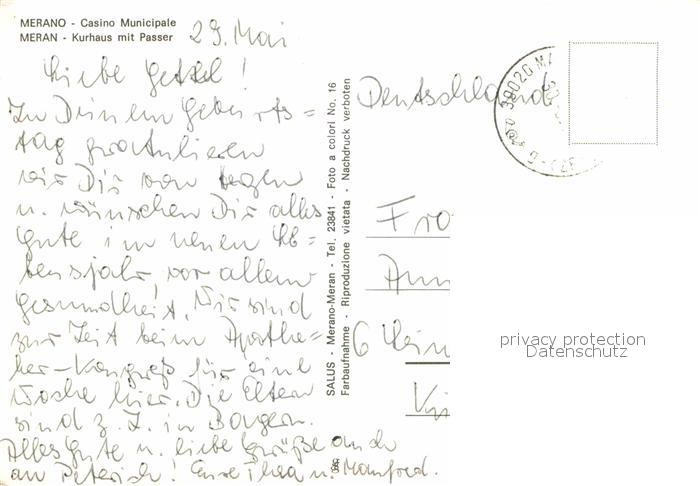 MERANO - Casino Municipale
MERAN - Kurhaus mit Passer
29. Mai
Liebe !
Zu Deinem Geburts=
tag gratulieren
wir Dir von
u. wünschen Dir alles
Gute im neuen Le=
bensjahr, vor allem
Gesundheit. Wir sind
zur Zeit beim Apothe=
ker-Kongreß für eine
Woche hier. Die Eltern
sind z. Z. in Bayern.
Alles Gute u. liebe Grüße auch
an Peterich! Eure Thea u. Manfred.
SALUS - Merano-Meran - Tel. 23841 - Foto a colori No. 16
Farbaufnahme - Riproduzione vietata - Nachdruck verboten
Deutschland
39020
Fra
Ann
6
privacy protection
Datenschutz